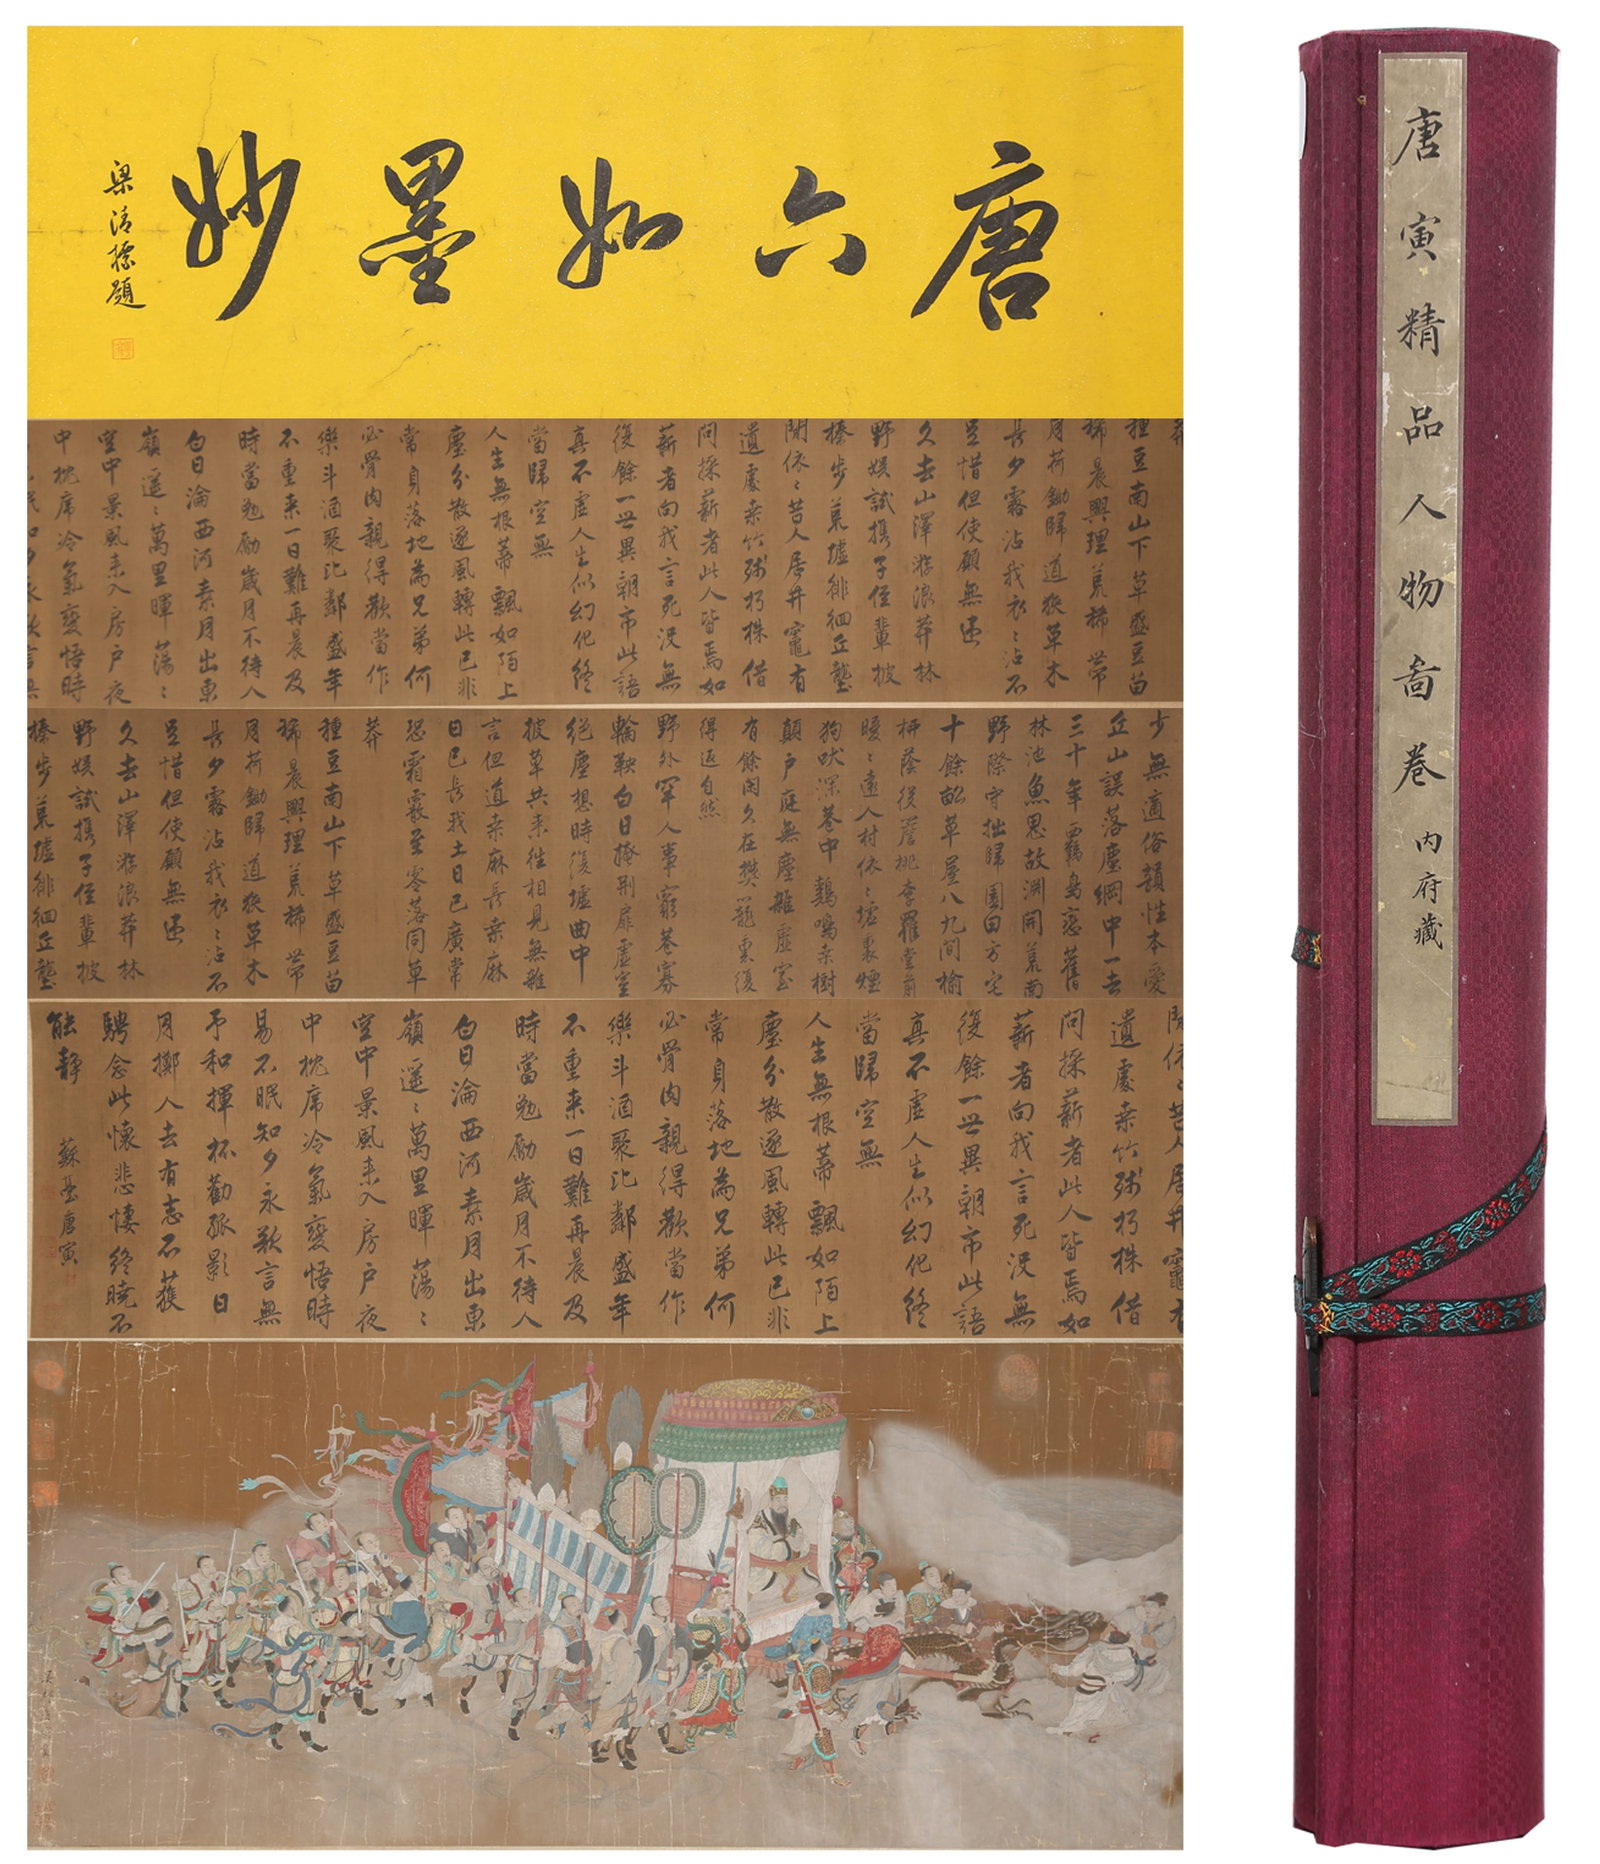 唐六如墨妙
梁清標題
種豆南山下草盛豆苗
稀晨興理荒稀帶
月荷鋤歸道狹草木
長夕露沾我衣〻沾不
足惜但使願無違
久去山澤游浪莽林
野娱試携子侄輩披
榛步荒墟徘徊丘壟
間依〻昔人居井竈有
遺處桑竹殘朽株借
問採薪者此人皆焉如
薪者向我言死沒無
復餘一世異朝市此語
真不虛人生似幻化終
當歸空無
人生無根蒂飄如陌上
塵分散逐風轉此已非
常身落地為兄弟何
必骨肉親得歡當作
樂斗酒聚比鄰盛年
不重來一日難再晨及
時當勉勵歲月不待人
白日淪西河素月出東
嶺遥〻萬里暉蕩〻
空中景風來入房户夜
中枕席冷氣變悟時
少無適俗韻性本愛
丘山誤落塵網中一去
三十年羈鳥戀舊
林池魚思故淵開荒南
野際守拙歸園田方宅
十餘畝草屋八九間榆
柳蔭後簷桃李羅堂前
曖〻遠人村依〻墟裏煙
狗吠深巷中鷄鳴桑樹
顛户庭無塵雜虛室
有餘閑久在樊籠裏復
得返自然
野外罕人事窮巷寡
輪鞅白日掩荆扉虛室
絕塵想時復墟曲中
披草共來往相見無雜
言但道桑麻長桑麻
日已長我土日已廣常
恐霜霰至零落同草
莽
種豆南山下草盛豆苗
稀晨興理荒稀帶
月荷鋤歸道狹草木
長夕露沾我衣〻沾不
足惜但使願無違
久去山澤游浪莽林
野娱試携子侄輩披
榛步荒墟徘徊丘壟
間依〻昔人居井竈有
遺處桑竹殘朽株借
問採薪者此人皆焉如
薪者向我言死沒無
復餘一世異朝市此語
真不虛人生似幻化終
當歸空無
人生無根蒂飄如陌上
塵分散逐風轉此已非
常身落地為兄弟何
必骨肉親得歡當作
樂斗酒聚比鄰盛年
不重來一日難再晨及
時當勉勵歲月不待人
白日淪西河素月出東
嶺遥〻萬里暉蕩〻
空中景風來入房户夜
中枕席冷氣變悟時
易不眠知夕永欲言無
予和揮杯勸孤影日
月擲人去有志不獲
騁念此懷悲悽終曉不
能静
蘇臺唐寅
唐寅精品人物啚卷 內府藏